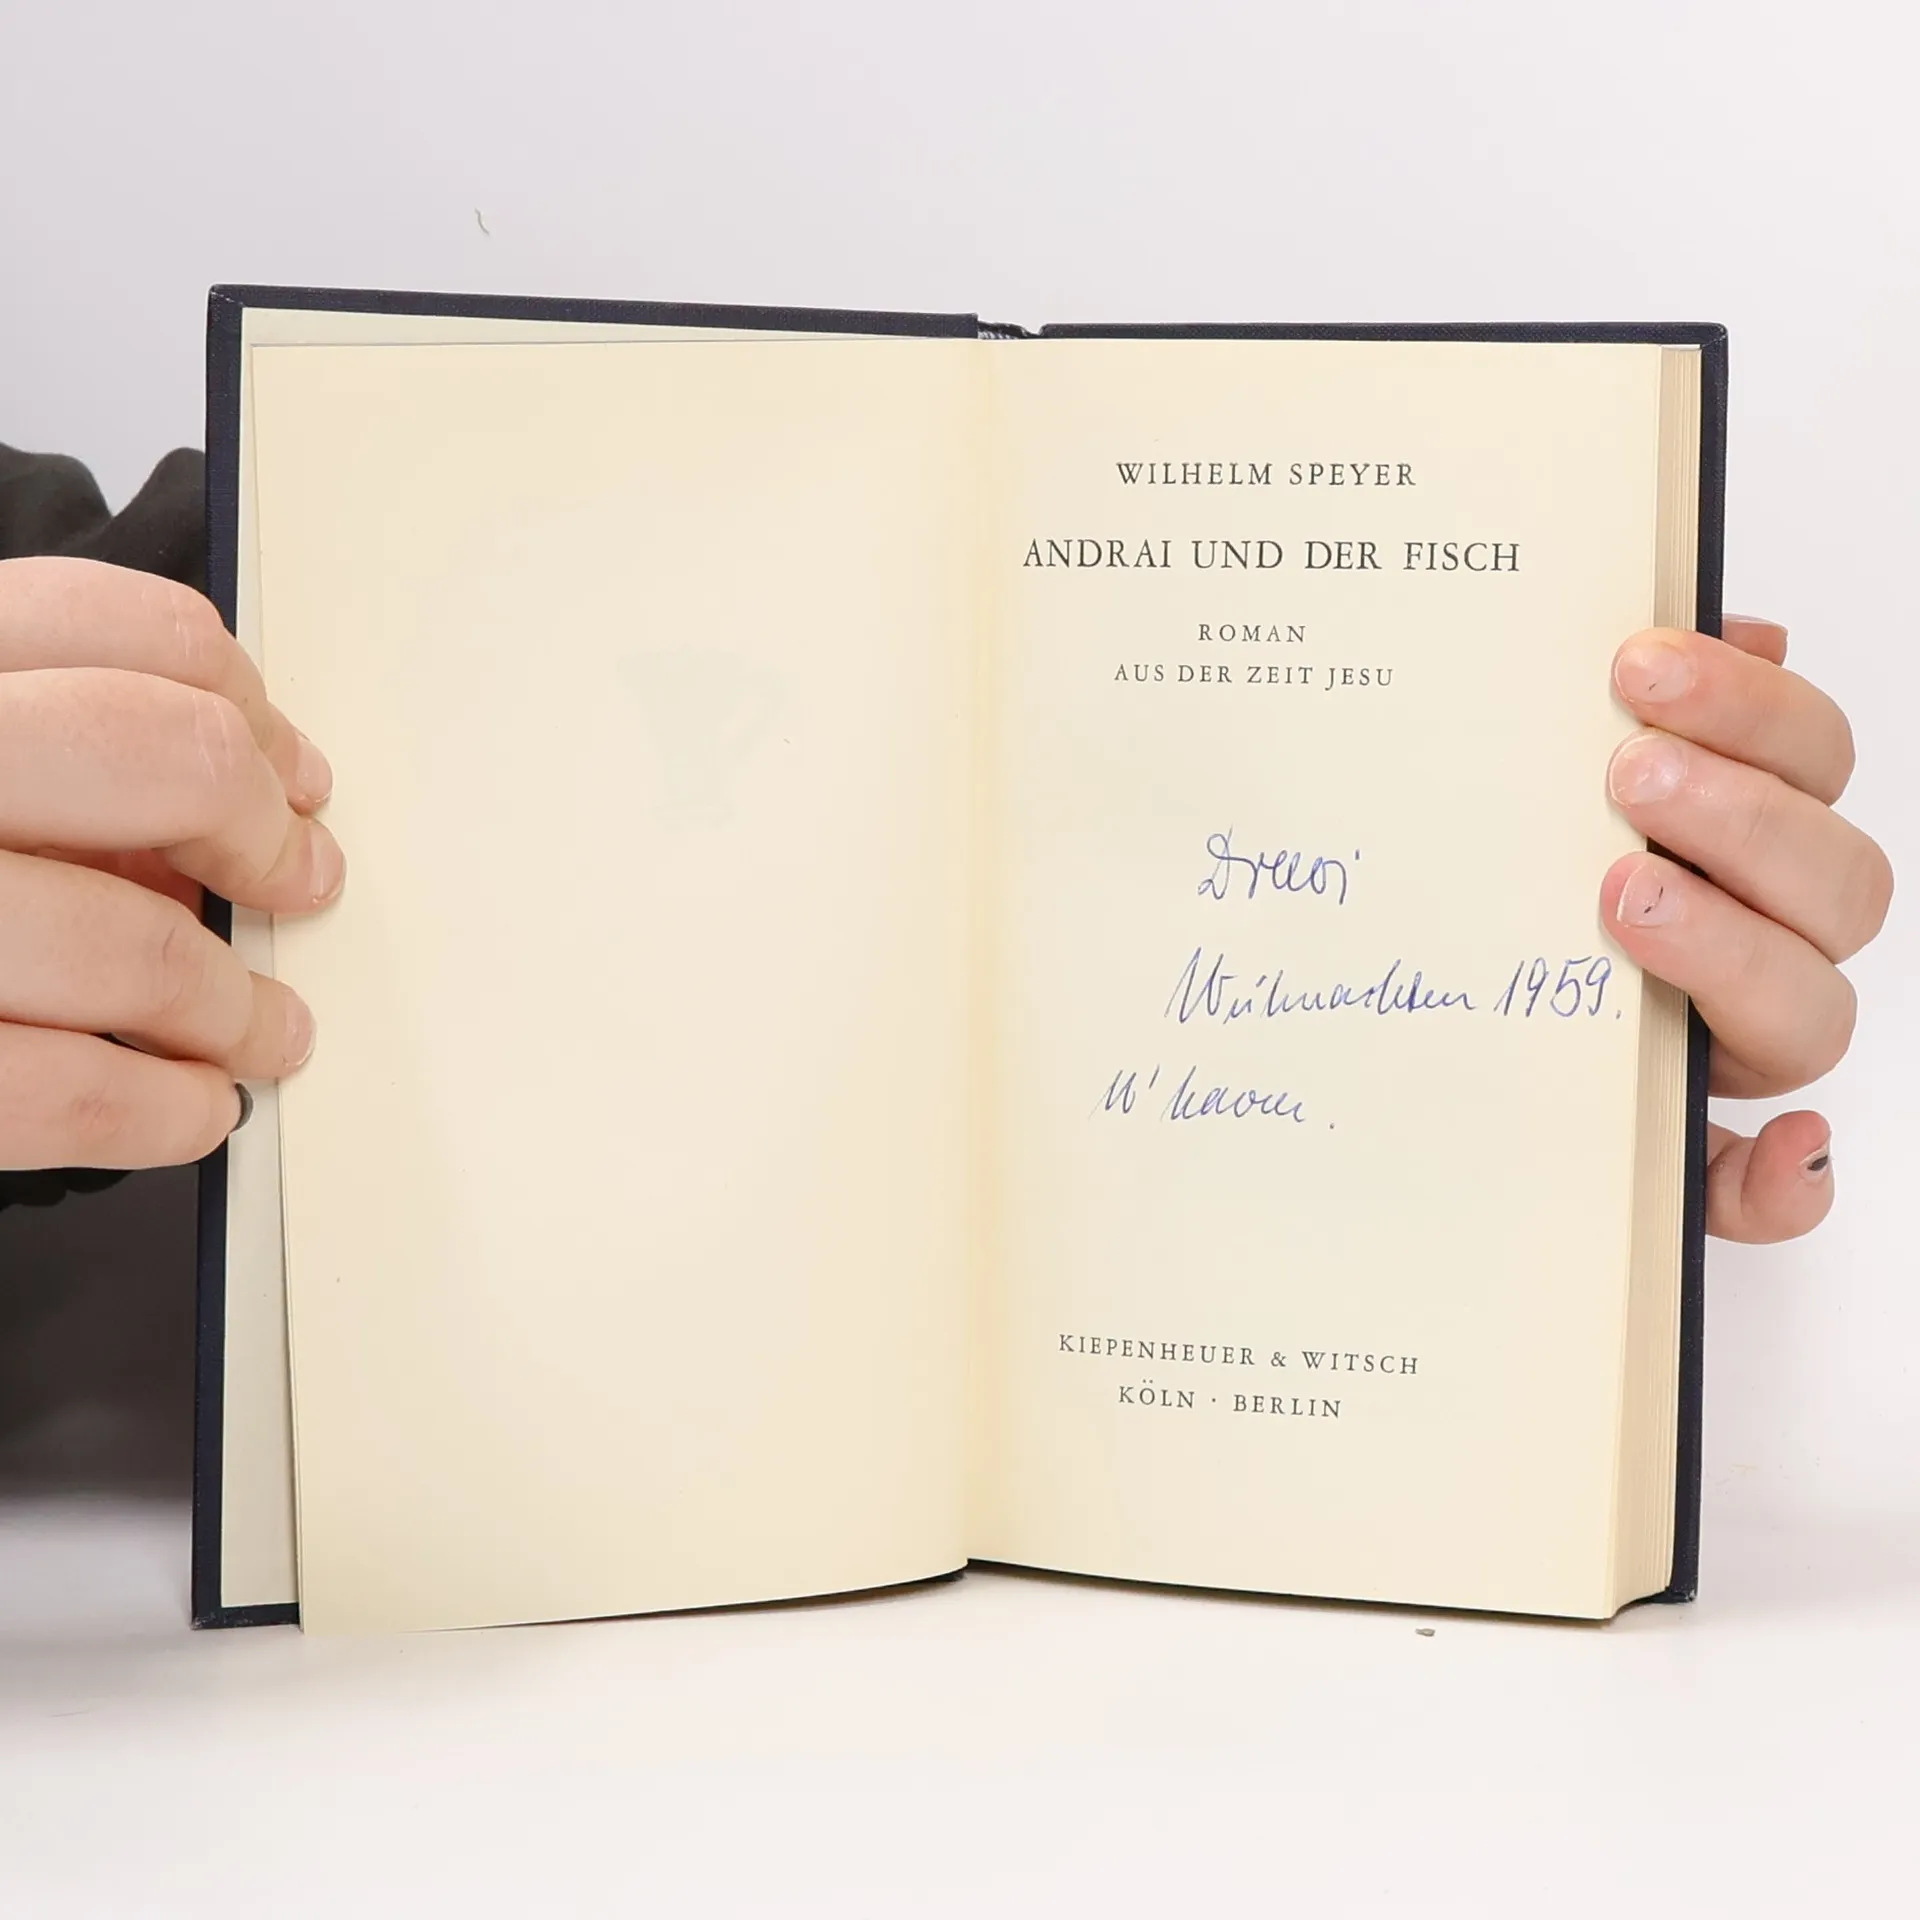 WILHELM SPEYER
ANDRAI UND DER FISCH
ROMAN
AUS DER ZEIT JESU
Weihnachten 1959.
KIEPENHEUER & WITSCH
KÖLN · BERLIN